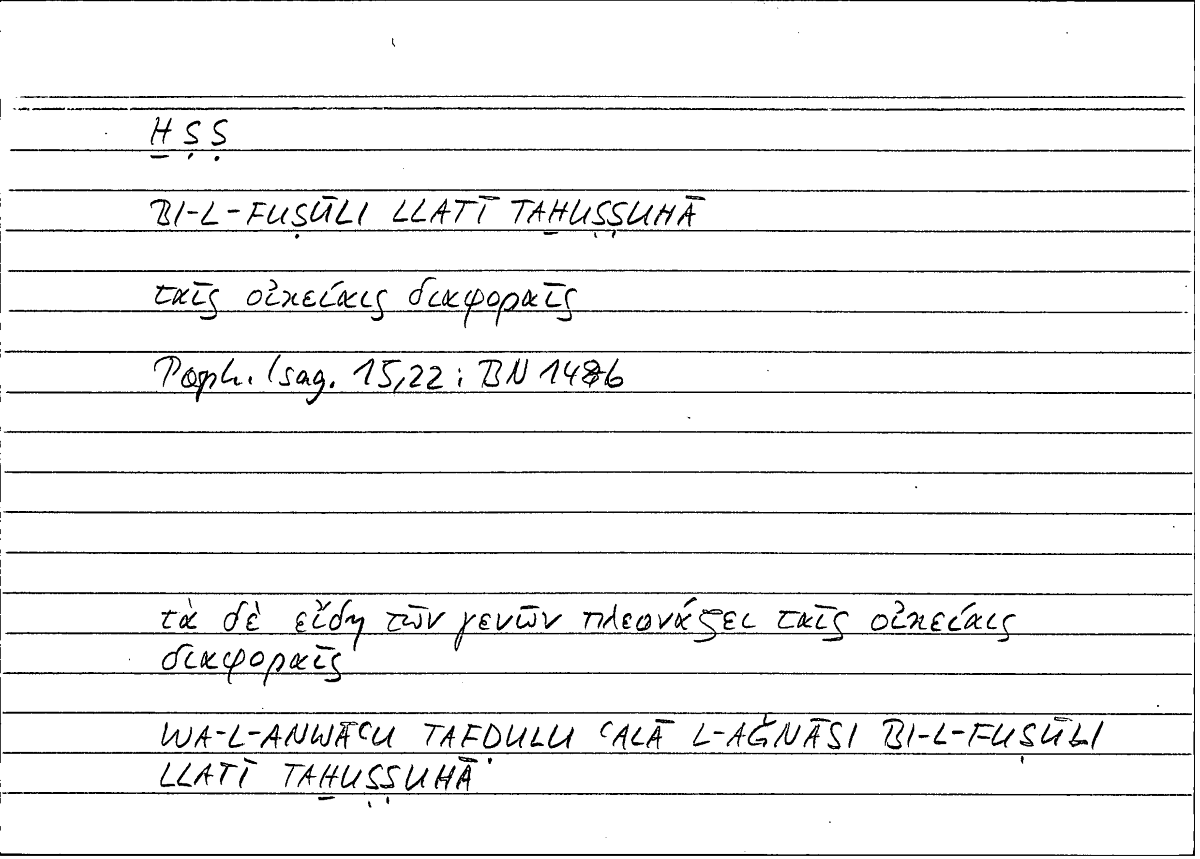 Ḫ Ṣ Ṣ
BI-L-FUṢŪLI LLATĪ TAḪUṢṢUHĀ
ταῖς οἰκείαις διαφοραῖς
Porph. Isag. 15,22 : BN 148b
τὰ δὲ εἴδη τῶν γενῶν πλεονάζει ταῖς οἰκείαις
διαφοραῖς
WA-L-ANWĀʿU TAFḌULU ʿALĀ L-AǦNĀSI BI-L-FUṢŪLI
LLATĪ TAḪUṢṢUHĀ